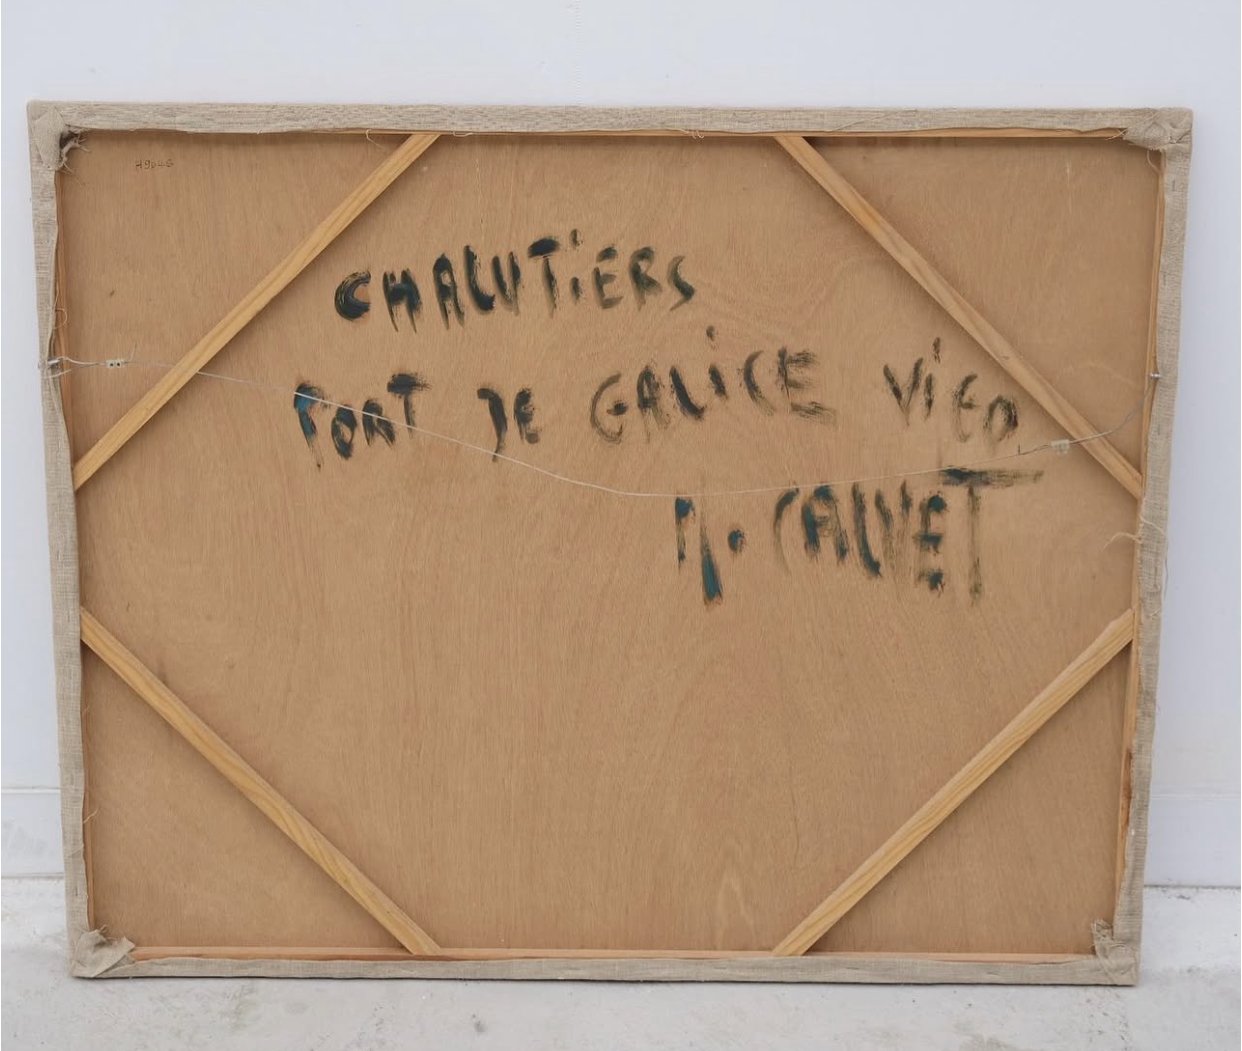 CHALUTiERS
PORT DE GALiCE ViGO
M. CALVET